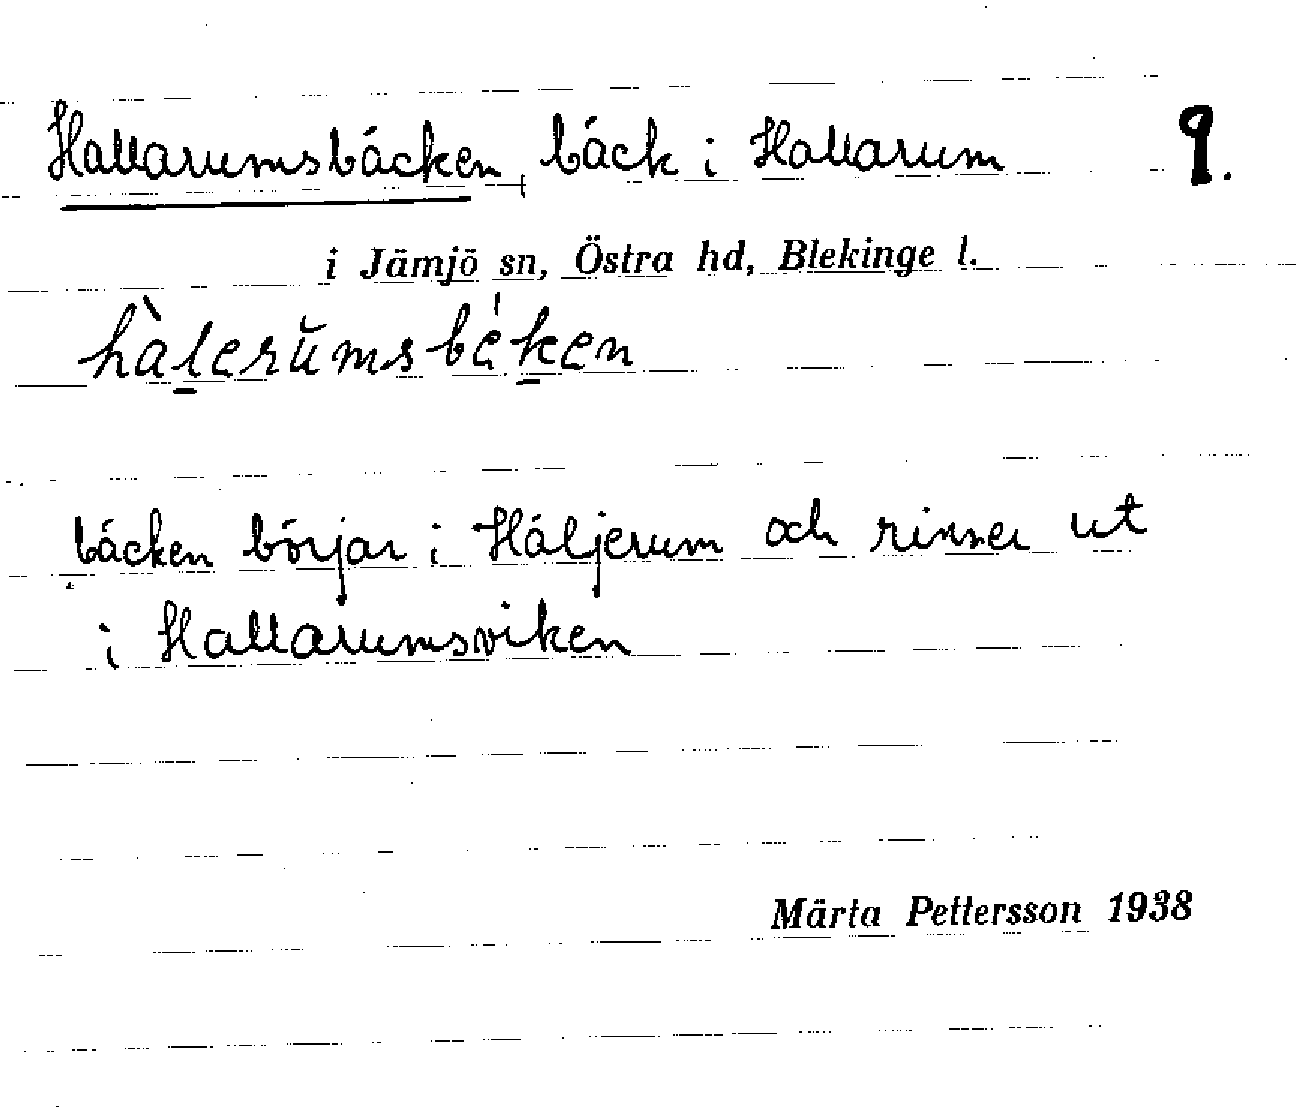 Hallarumsbäcken, bäck i Hallarum 9.
i Jämjö sn, Östra hd, Blekinge l.
hàlerŭmsbéken
bäcken börjar i Häljerum och rinner ut
i Hallarumsviken
Märta Pettersson 1938